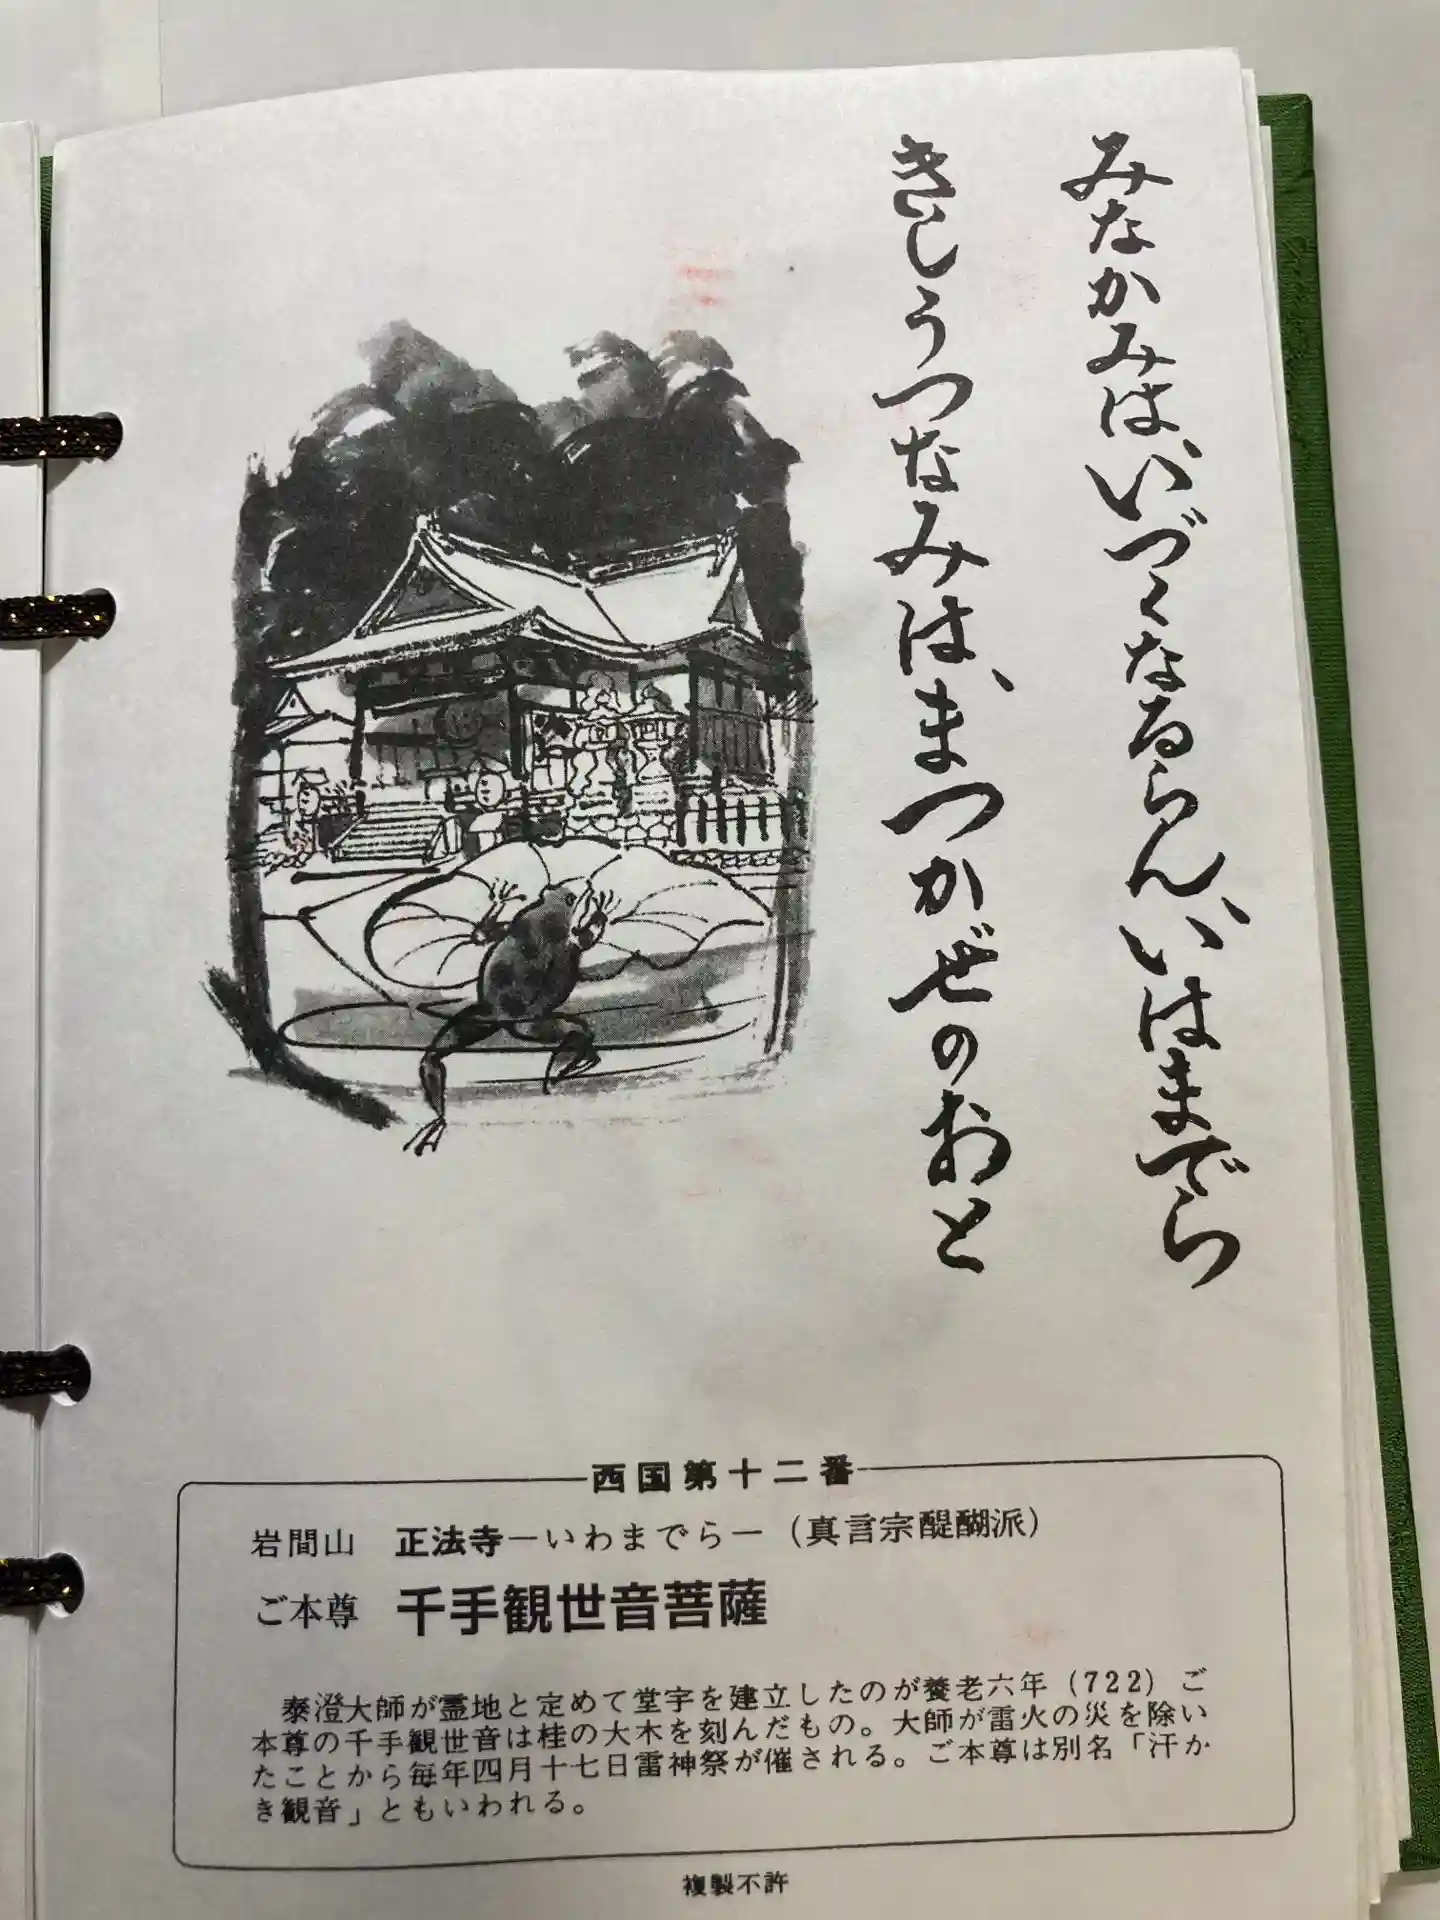 みなかみは、いづくなるらん、いはまでら
きしうつなみは、まつかぜのおと
西国第十二番
岩間山　正法寺―いわまでら―（真言宗醍醐派）
ご本尊　千手観世音菩薩
泰澄大師が霊地と定めて堂宇を建立したのが養老六年（722）ご
本尊の千手観世音は桂の大木を刻んだもの。大師が雷火の災を除い
たことから毎年四月十七日雷神祭が催される。ご本尊は別名「汗か
き観音」ともいわれる。
複製不許